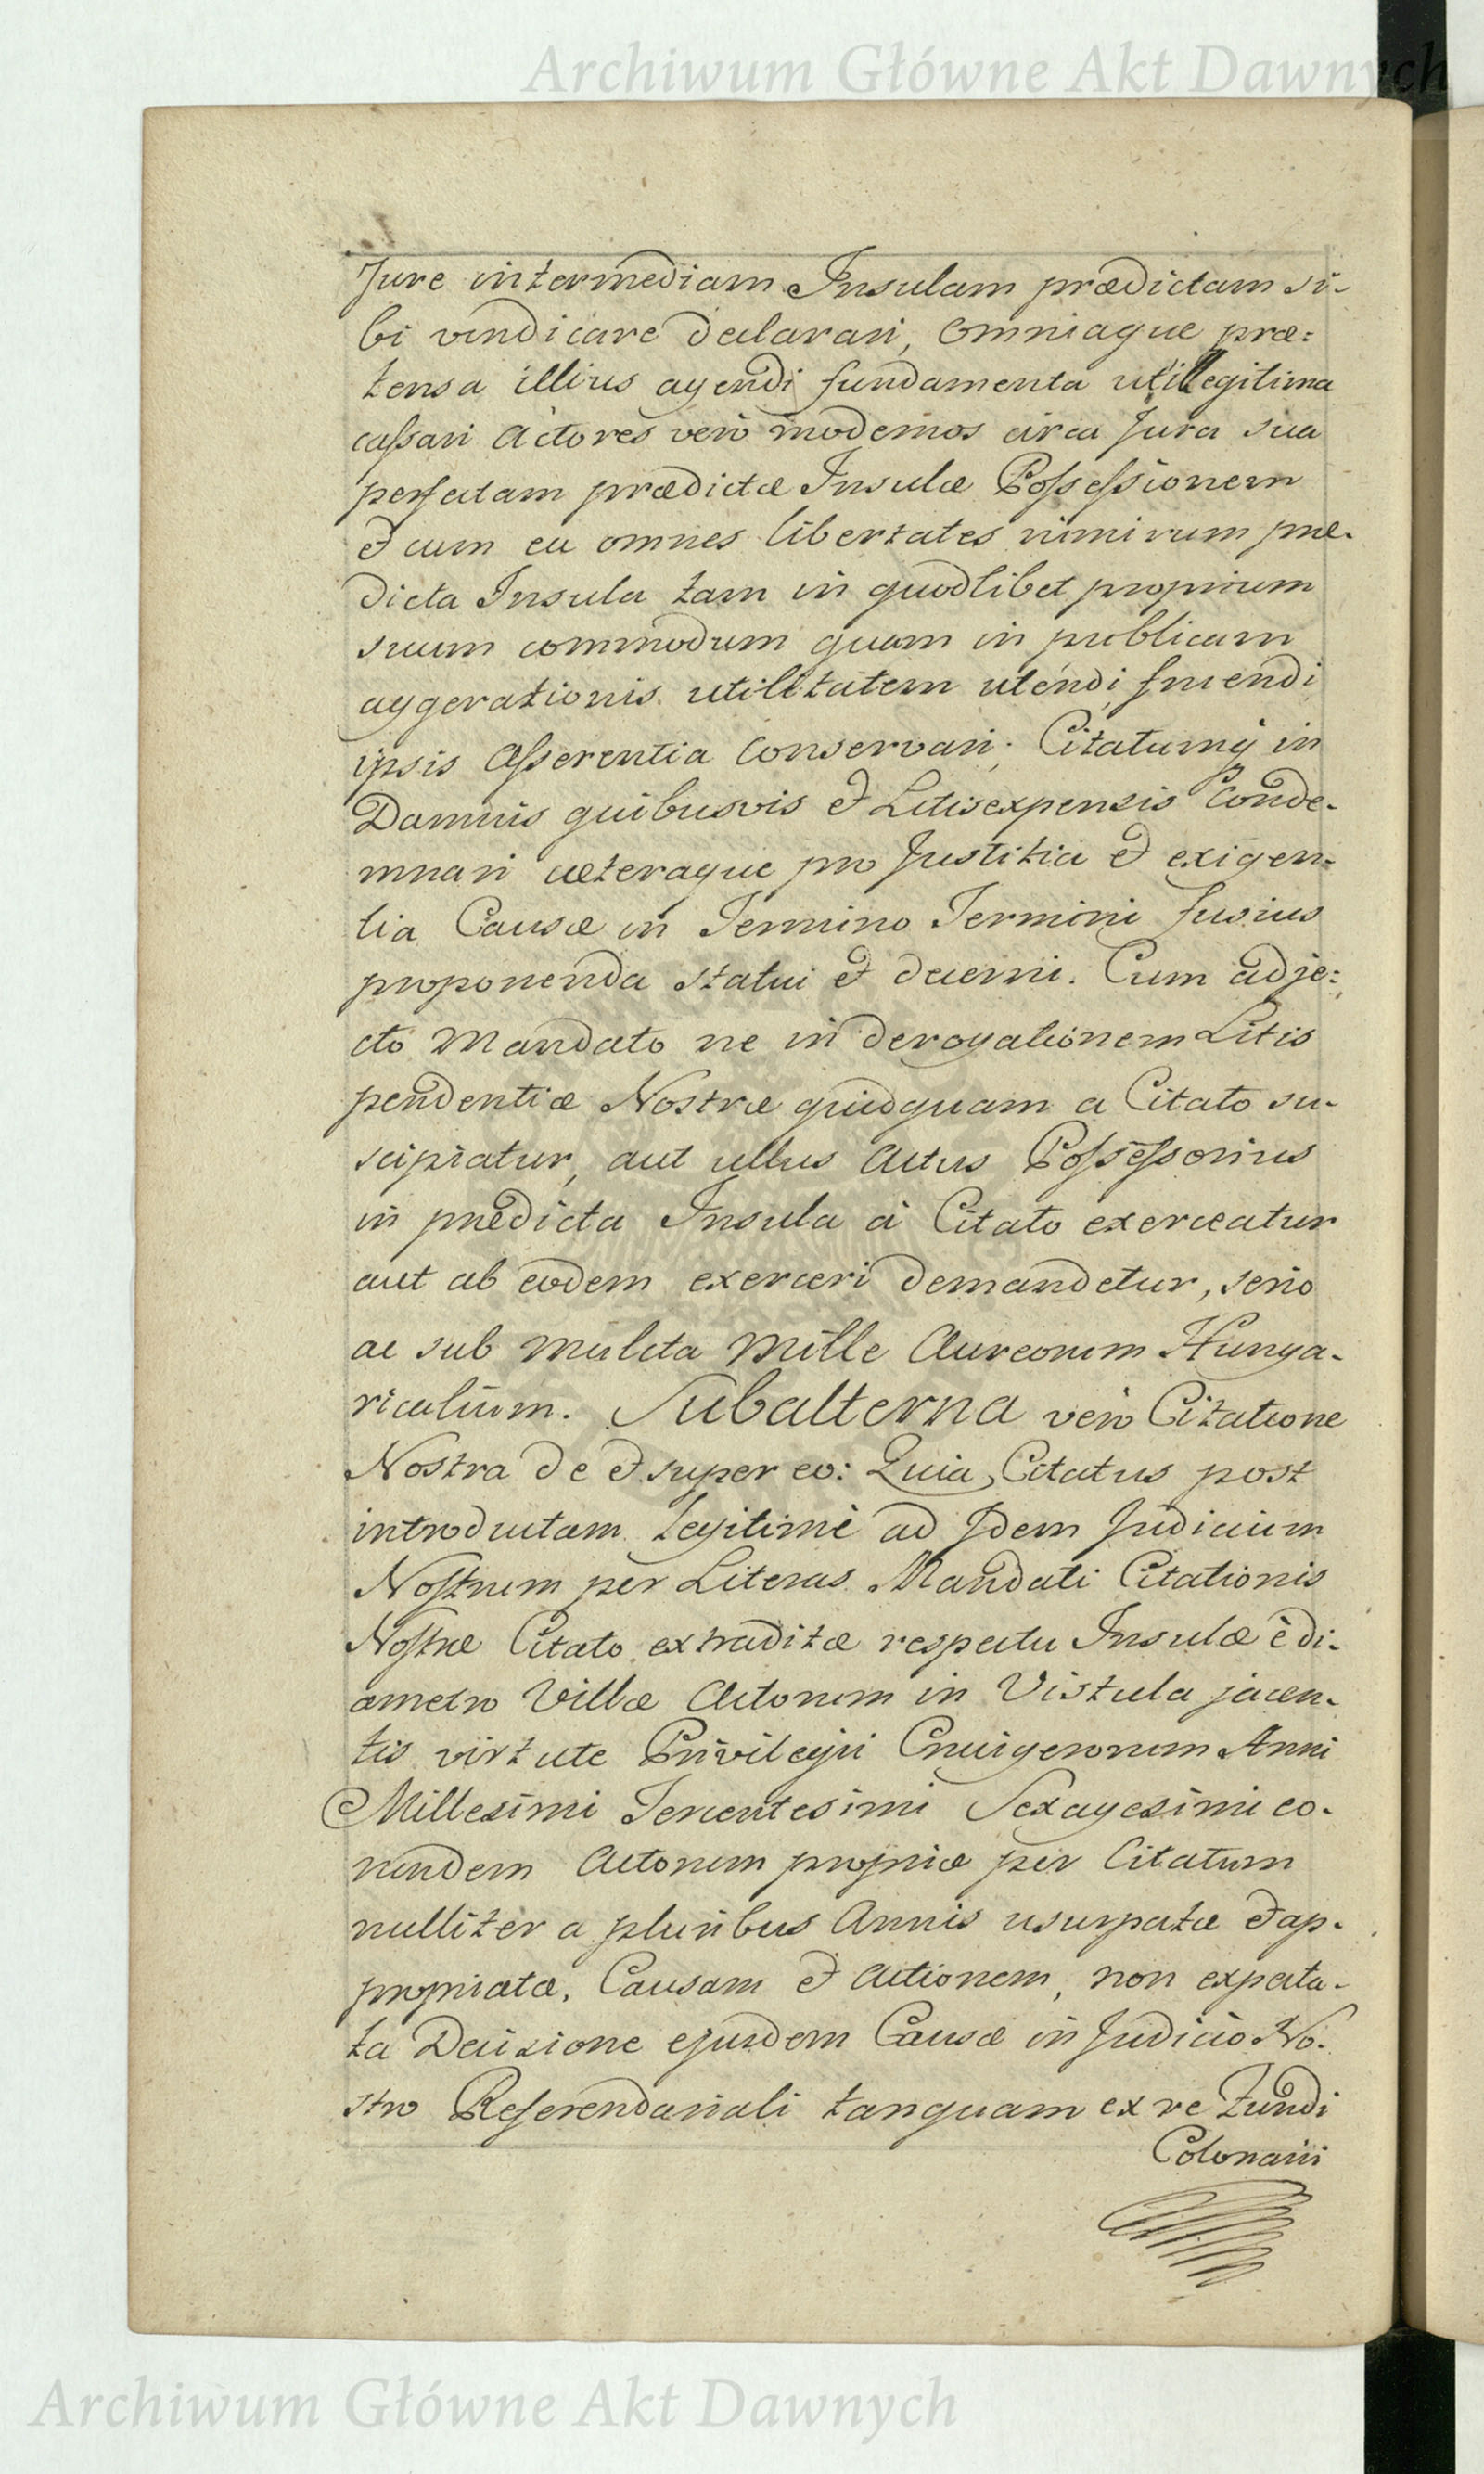 Archiwum Główne Akt Dawnych
Jure intermediam Insulam prædictam si-
bi vendicare declarari, Omniaque præ:
tensa illius agendi fundamenta uti illegitima
cassari Actores verò modernos circa Jura sua
perfectam prædictæ Insulæ Possessionem
et cum ea omnes libertates nimirum præ-
dicta Insula tam in quodlibet proprium
suum commodum quam in publicam
aggerationis utilitatem utendi, fruendi
ipsis Asserentia conservari; Citatumq; in
Damnis quibusvis et Litisexpensis Conde-
mnari cæteraque pro Justitia et exigen-
tia Causæ in Termino Termini fusius
proponenda statui et decerni. Cum adje:
cto Mandato ne in derogationem Litis
pendentiæ Nostræ quidquam a Citato su-
scipiatur, aut ullus Actus Possessorius
in prædicta Insula à Citato exerceatur
aut ab eodem exerceri demandetur, serio
ac sub mulcta Mille Aureorum Hunga-
ricalium. Subalterna verò Citatione
Nostra de et super eo: Quia Citatus post
introductam legitimè ad Idem Judicium
Nostrum per Literas Mandati Citationis
Nostræ Citato extraditæ respectu Insulæ è di-
ametro Villæ Actorum in Vistula jacen-
tis virtute Privilegii Crucigerorum Anni
Millesimi Tercentesimi Sexagesimi eo-
rundem Actorum propriæ per Citatum
nulliter a pluribus Annis usurpatæ et ap-
propriatæ, Causam et Actionem, non expecta-
ta Decisione ejusdem Causæ in Judicio No-
stro Referendariali tanquam ex re Fundi
Colonarii
Archiwum Główne Akt Dawnych